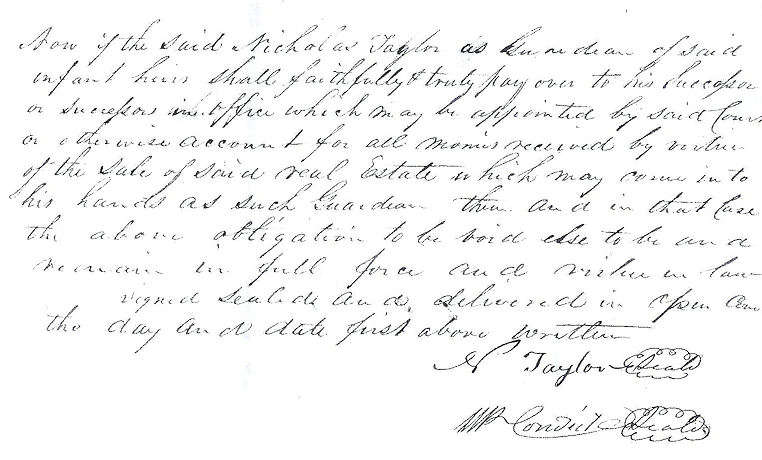 Now if the said Nicholas Taylor as Guardian of said
infant heirs shall faithfully & truly pay over to his successor
or successors in office which may be appointed by said Court
or otherwise account for all monies received by virtue
of the sale of said real Estate which may come into
his hands as such Guardian then and in that Case
the above obligation to be void else to be and
remain in full force and virtue in law
signed sealed and delivered in open Cou
the day and date first above written
N Taylor Seal
Condict Seal